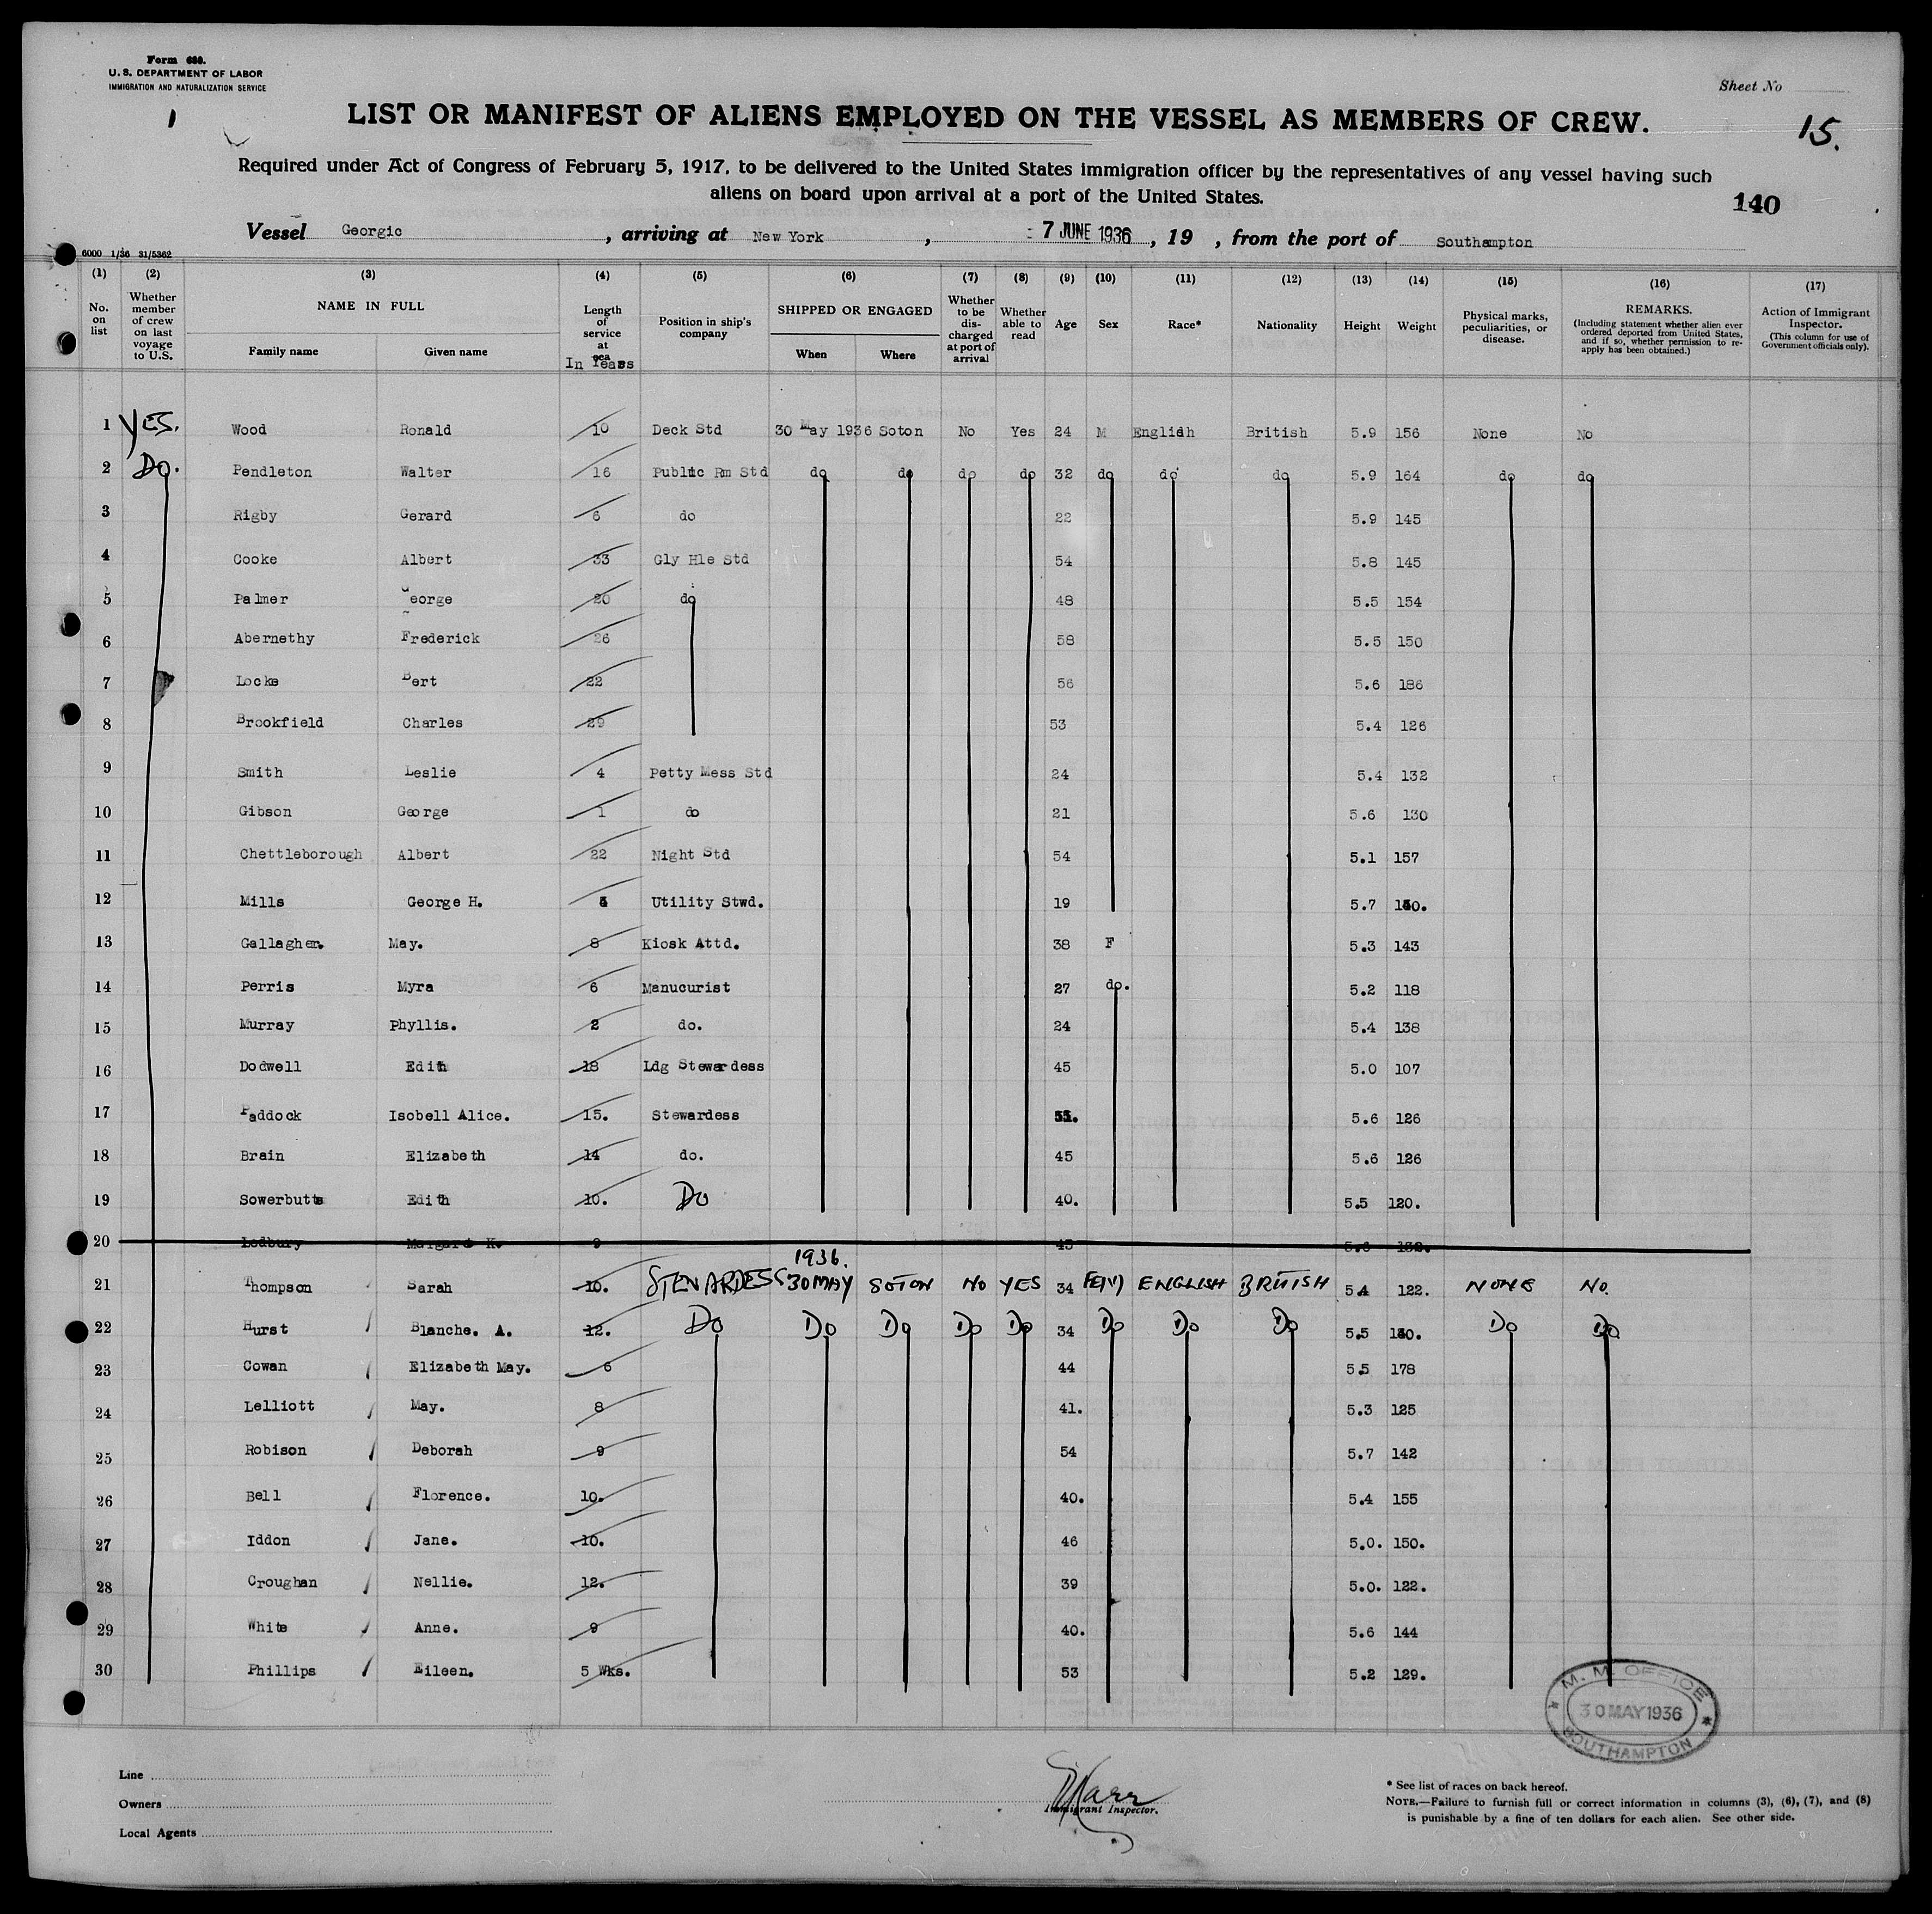 Form 680.
U. S. DEPARTMENT OF LABOR
IMMIGRATION AND NATURALIZATION SERVICE
Sheet No
1
LIST OR MANIFEST OF ALIENS EMPLOYED ON THE VESSEL AS MEMBERS OF CREW.
15.
Required under Act of Congress of February 5, 1917, to be delivered to the United States immigration officer by the representatives of any vessel having such
aliens on board upon arrival at a port of the United States.
140
Vessel Georgic, arriving at New York, 7 JUNE 1936, 19 , from the port of Southampton
6000 1/36 31/5362
(1) (2) (3) (4) (5) (6) (7) (8) (9) (10) (11) (12) (13) (14) (15) (16) (17)
No. on list
Whether member of crew on last voyage to U.S.
NAME IN FULL
Family name Given name
Length of service at sea
In Years
Position in ship's company
SHIPPED OR ENGAGED
When Where
Whether to be discharged at port of arrival
Whether able to read
Age
Sex
Race*
Nationality
Height
Weight
Physical marks, peculiarities, or disease.
REMARKS.
(Including statement whether alien ever ordered deported from United States, and if so, whether permission to re-apply has been obtained.)
Action of Immigrant Inspector.
(This column for use of Government officials only).
1 YES. Wood Ronald 10 Deck Std 30 May 1936 Soton No Yes 24 M English British 5.9 156 None No
2 Do. Pendleton Walter 16 Public Rm Std do do do do 32 do do do 5.9 164 do do
3 Rigby Gerard 6 do 22 5.9 145
4 Cooke Albert 33 Gly Hle Std 54 5.8 145
5 Palmer George 20 do 48 5.5 154
6 Abernethy Frederick 26 58 5.5 150
7 Locke Bert 22 56 5.6 186
8 Brookfield Charles 29 53 5.4 126
9 Smith Leslie 4 Petty Mess Std 24 5.4 132
10 Gibson George 1 do 21 5.6 130
11 Chettleborough Albert 22 Night Std 54 5.1 157
12 Mills George H. Utility Stwd. 19 5.7
13 Gallagher. May. 8 Kiosk Attd. 38 F 5.3 143
14 Perris Myra 6 Manucurist 27 do. 5.2 118
15 Murray Phyllis. 2 do. 24 5.4 138
16 Dodwell Edith 18 Ldg Stewardess 45 5.0 107
17 Paddock Isobell Alice. 15. Stewardess 5.6 126
18 Brain Elizabeth 14 do. 45 5.6 126
19 Sowerbutts Edith 10. Do 40. 5.5 120.
20 Ledbury Margaret K. 9 45
21 Thompson Sarah 10. STEWARDESS 1936. 30 MAY SOTON NO YES 34 FE(M) ENGLISH BRITISH 5.4 122. NONE NO.
22 Hurst Blanche. A. 12. Do Do Do Do Do 34 Do Do Do 5.5 Do Do
23 Cowan Elizabeth May. 6 44 5.5 178
24 Lelliott May. 8 41. 5.3 125
25 Robison Deborah 9 54 5.7 142
26 Bell Florence. 10. 40. 5.4 155
27 Iddon Jane. 10. 46 5.0. 150.
28 Croughan Nellie. 12. 39 5.0. 122.
29 White Anne. 9 40. 5.6 144
30 Phillips Eileen. 5 Wks. 53 5.2 129.
M. M. OFFICE
30 MAY 1936
SOUTHAMPTON
Line
Owners
Local Agents
Immigrant Inspector.
* See list of races on back hereof.
NOTE.—Failure to furnish full or correct information in columns (3), (6), (7), and (8)
is punishable by a fine of ten dollars for each alien. See other side.